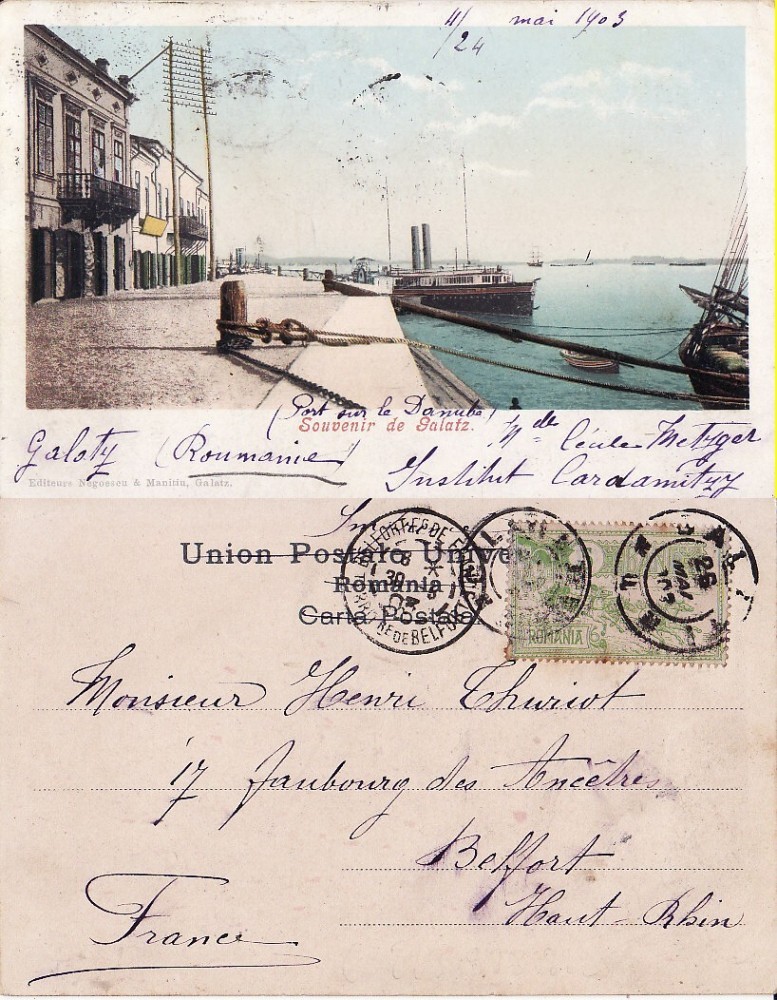 11/24 mai 1903
(Port sur le Danube)
Souvenir de Galatz.
Galatz (Roumanie)
Mlle Cécile Metzger
Institut Cardamitzy
Editeurs Negoescu & Manitiu, Galatz.
Imp
Union Postale Unive
Romania
Carta Postala
BELFORT
ROMANIA
GALATI
26 MAI 903
Monsieur Henri Thuriot
17 faubourg des Ancêtres
Belfort
Haut-Rhin
France